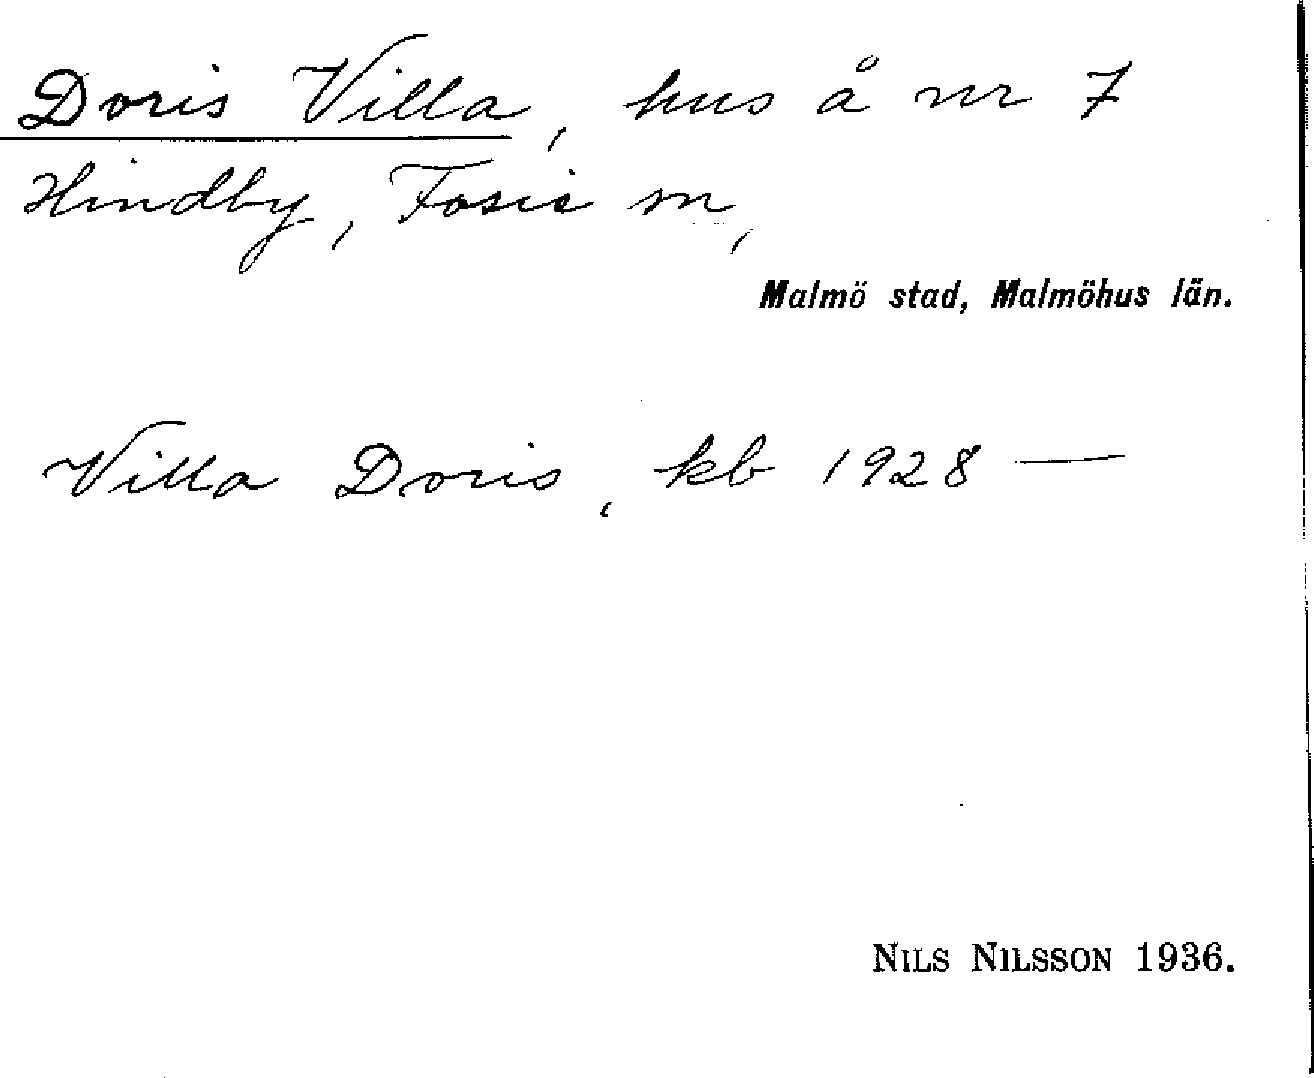 Doris Villa, hus å nr 7
Hindby, Fosie sn,
Malmö stad, Malmöhus län.
Villa Doris, kb 1928 —
NILS NILSSON 1936.